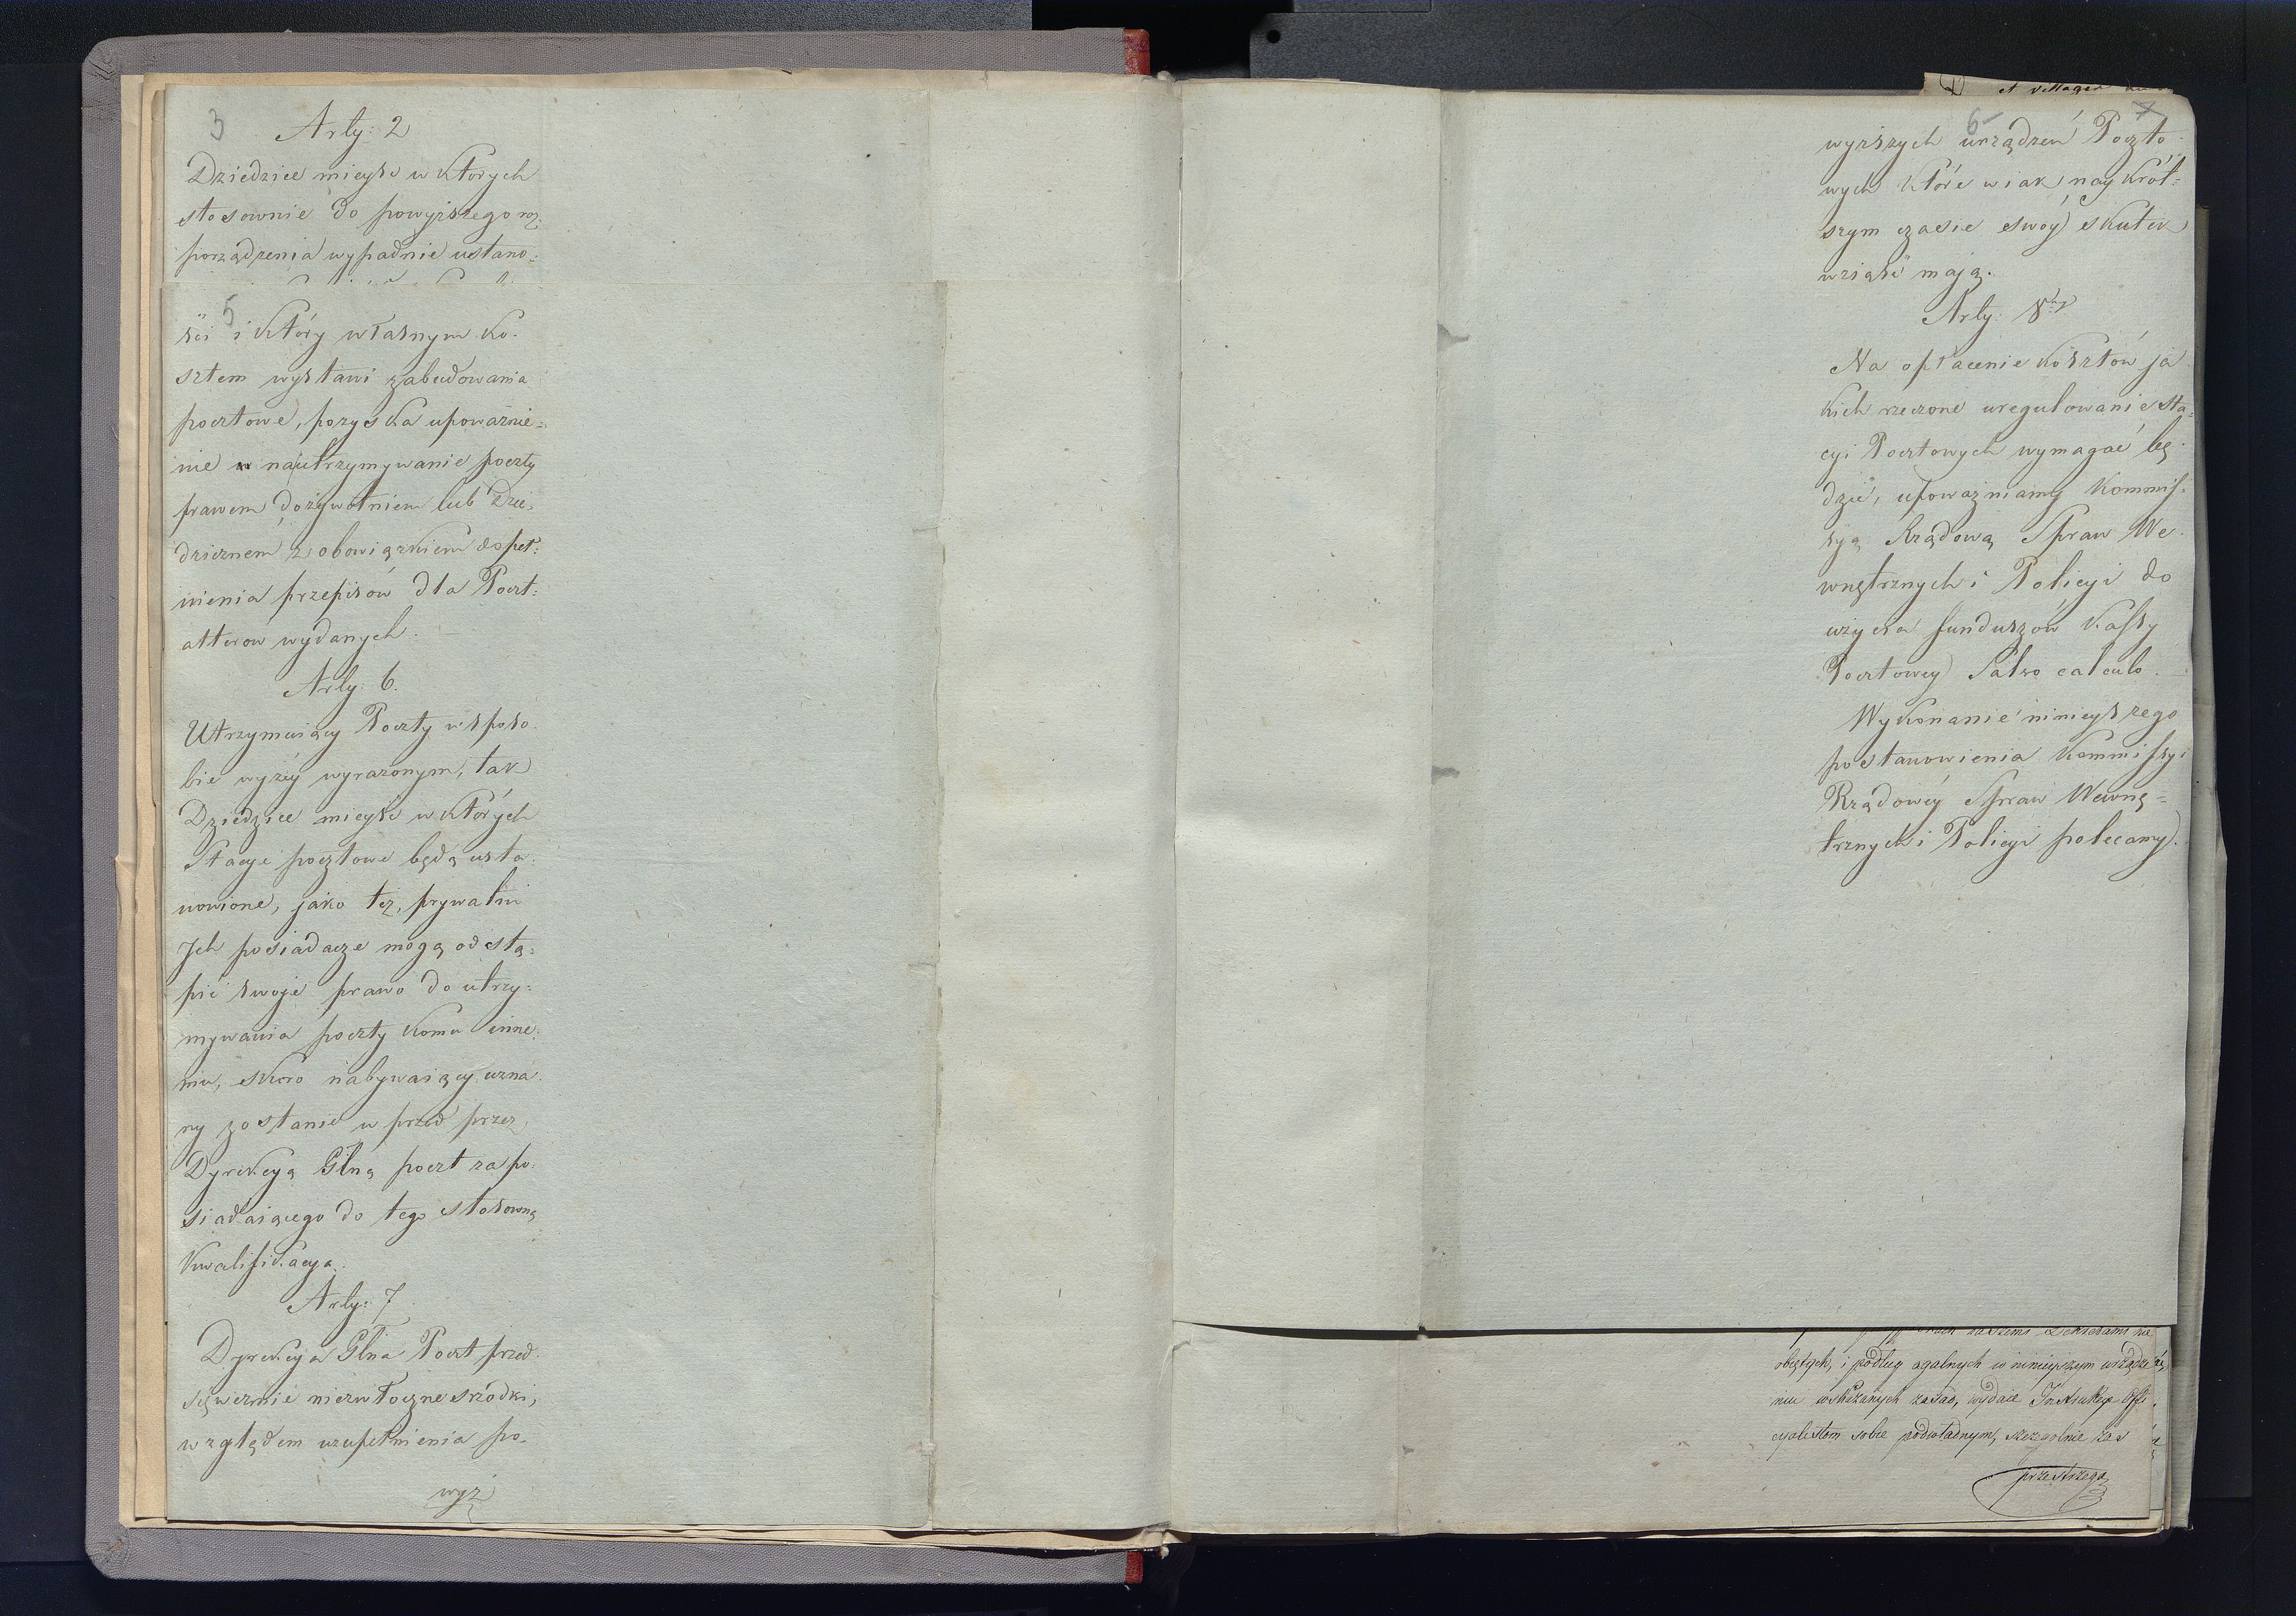 3
Arty: 2
Dziedzice mieysc w których
stosownie do powyższego roz:
porządzenia wypadnie ustano:
5
ści i który własnym ko-
sztem wystawi zabudowania
pocztowe, pozyska upoważnie:
nie na utrzymywanie poczty
prawem dożywotniem lub dzie:
dzicznem z obowiązkiem dopeł:
nienia przepisów dla Poczt:
alterow wydanych.
Arty: 6.
Utrzymuiący Poczty w sposo-
bie wyżéy wyrażonym, tak
Dziedzice mieysc w których
Stacye pocztowe będą usta:
nowione, jako też, prywatni
Jch posiadacze mogą odstą:
pić swoje prawo do utrzy:
mywania poczty komu inne:
mu, skoro nabywaiący uzna-
ny zostanie w przód przez
Dyrekcyą Glną poczt za po:
siadaiącego do tego stosowną
kwalifikacyą.
Arty: 7
Dyrekcyja Glna Poczt przed-
sięweźmie niezwłoczne srzodki,
względem uzupełnienia po-
wyż
6 7
wyższych urządzeń Poczto-
wych które w iak nay krót:
szym czasie swóy skutek
wziąść mają.
Arty. 8my
Na opłacenie kosztów ja
kich rzeczone uregulowanie sta:
cyi Pocztowych wymagać bę-
dzie, upoważniamy Kommis-
syą Rządową Spraw We-
wnętrznych i Policyi do
użycia funduszów Kassy
Pocztowey Salvo calculo.
Wykonanie ninieyszego
postanowienia Kommissyi
Rządowéy Spraw Wewnę=
trznych i Policyi polecamy.
et villages
objętych, i podług ogolnych w ninieyszym urządze
niu wskazanych zasad, wydaie Jnstrukcye Offi
cyalistom sobie podwładnym, szczegolnie zas
przestrzega